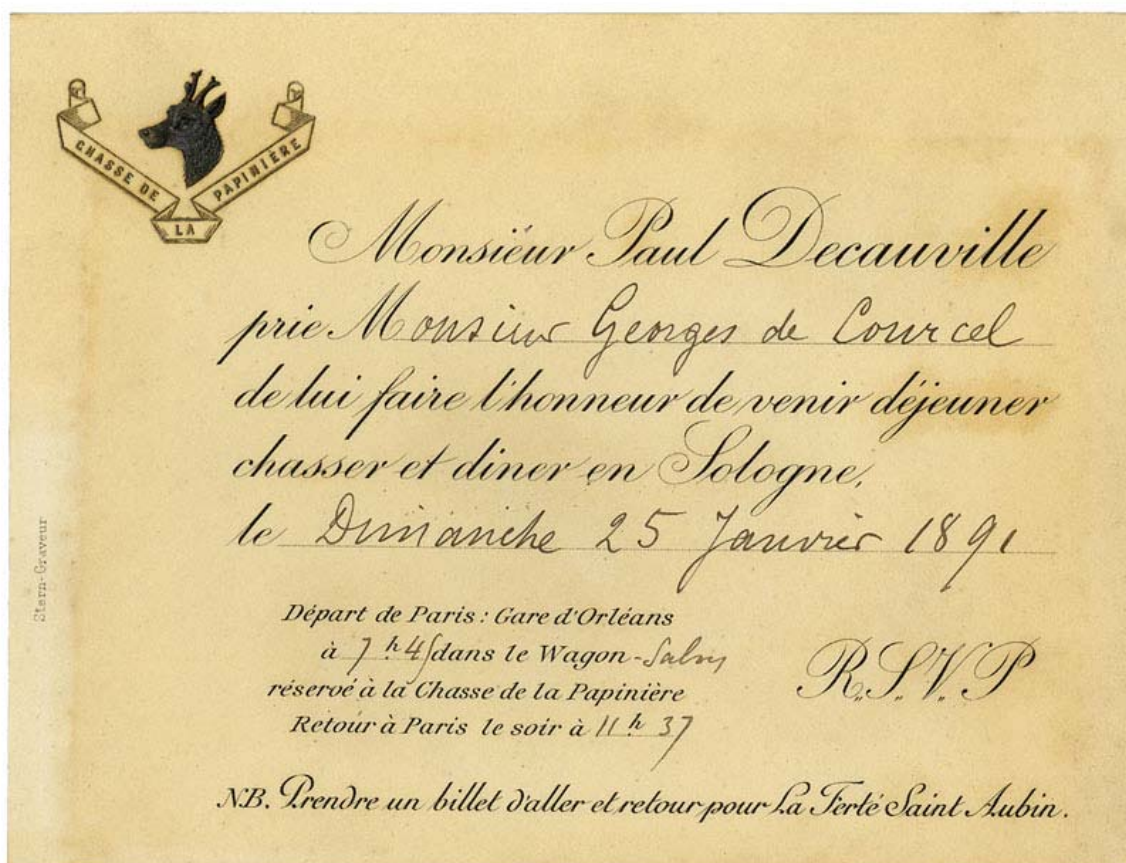 CHASSE DE LA PAPINIÈRE
Monsieur Paul Decauville
prie Monsieur Georges de Courcel
de lui faire l'honneur de venir déjeuner
chasser et diner en Sologne,
le Dimanche 25 Janvier 1891
Départ de Paris : Gare d'Orléans
à 7 h 45 dans le Wagon-Salon
réservé à la Chasse de la Papinière
Retour à Paris le soir à 11 h 37
R.S.V.P
N.B. Prendre un billet d'aller et retour pour La Ferté Saint Aubin.
Stern-Graveur